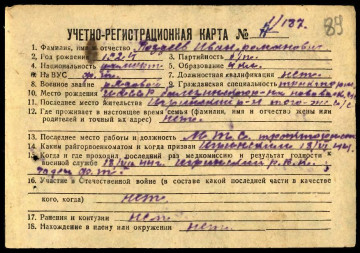 89
УЧЕТНО-РЕГИСТРАЦИОННАЯ КАРТА № 187.
1. Фамилия, имя и отчество Поздеев Иван Романович
2. Год рождения 1924 3. Партийность б/п.
4. Национальность 5. Образование 4 кл.
6. На ВУС 7. Должностная квалификация нет.
8. Военное звание рядовой 9. Гражданская специальность тракторист
10. Место рождения
11. Последнее место жительства Игринский р-н того-же
12. Где проживает в настоящее время семья (фамилия, имя и отчество жены или
родителей и точный их адрес) нет.
13. Последнее место работы и должность М.Т.С. тракторист
14. Каким райгорвоенкоматом и когда призван Игринский
15. Когда и где проходил последний раз медкомиссию и результат годности к
военной службе Игринский Р.В.К.
годен
16. Участие в Отечественной войне (в составе какой последней части и в качестве
кого, когда) нет
17. Ранения и контузии нет
18. Нахождение в плену или окружения нет.